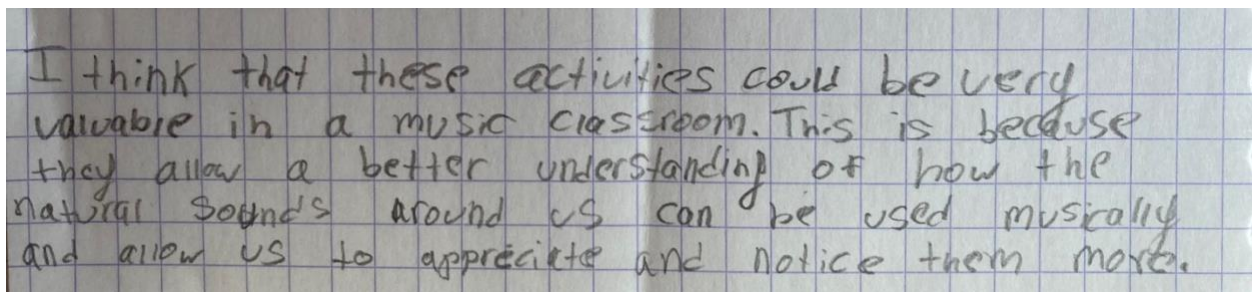 I think that these activities could be very
valuable in a music classroom. This is because
they allow a better understanding of how the
natural sounds around us can be used musically
and allow us to appreciate and notice them more.